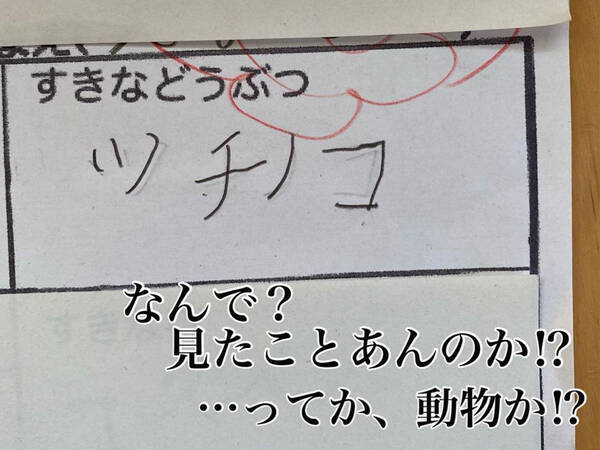 すきなどうぶつ
ツチノコ
なんで？
見たことあんのか⁉
…ってか、動物か⁉